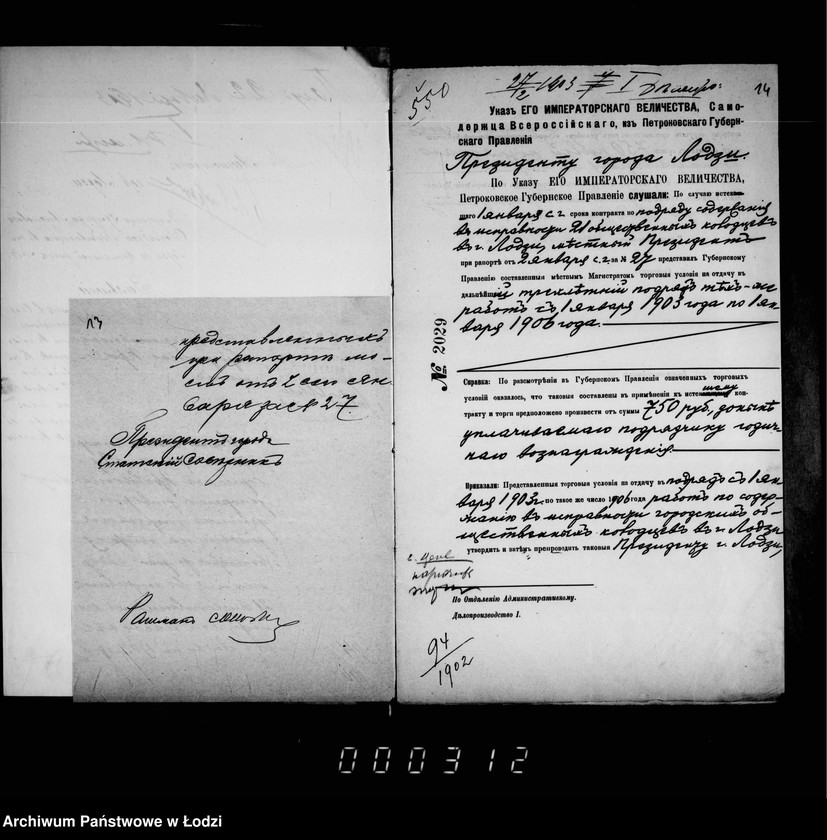 13
представленныхъ
при рапортѣ мо-
емъ отъ 2 сего Ян-
варя за № 27.
Президентъ города
Статскій Совѣтникъ
550
27/2 1903
I
14
Указъ ЕГО ИМПЕРАТОРСКАГО ВЕЛИЧЕСТВА, Само-
держца Всероссійскаго, изъ Петроковскаго Губерн-
скаго Правленія
Президенту города Лодзи.
По Указу ЕГО ИМПЕРАТОРСКАГО ВЕЛИЧЕСТВА,
Петроковское Губернское Правленіе слушали: По случаю истек-
шаго 1 января с.г. срока контракта по подряду содержанія
въ исправности 21 общественныхъ колодцевъ
въ г. Лодзи, мѣстный Президентъ
при рапортѣ отъ 2 января с.г. за № 27 представилъ Губернскому
Правленію составленныя мѣстнымъ Магистратомъ торговыя условія на отдачу въ
дальнѣйшій трехлѣтній подрядъ тѣхъ-же
работъ съ 1 января 1903 года по 1 ян-
варя 1906 года.
№ 2029
Справка: По разсмотрѣніи въ Губернскомъ Правленіи означенныхъ торговыхъ
условій оказалось, что таковыя составлены въ примѣненіи къ истекшему кон-
тракту и торги предположено произвести отъ суммы 750 руб., донынѣ
уплачиваемаго подрядчику годич-
наго вознагражденія.
Приказали: Представленныя торговыя условія на отдачу въ подрядъ съ 1 ян-
варя 1903 г. по такое же число 1906 года работъ по содер-
жанію въ исправности городскихъ об-
щественныхъ колодцевъ въ г. Лодзи
утвердить и затѣмъ препроводить таковыя Президенту г. Лодзи,
По Отдѣленію Административному.
Дѣлопроизводство I.
94/1902
000312
Archiwum Państwowe w Łodzi